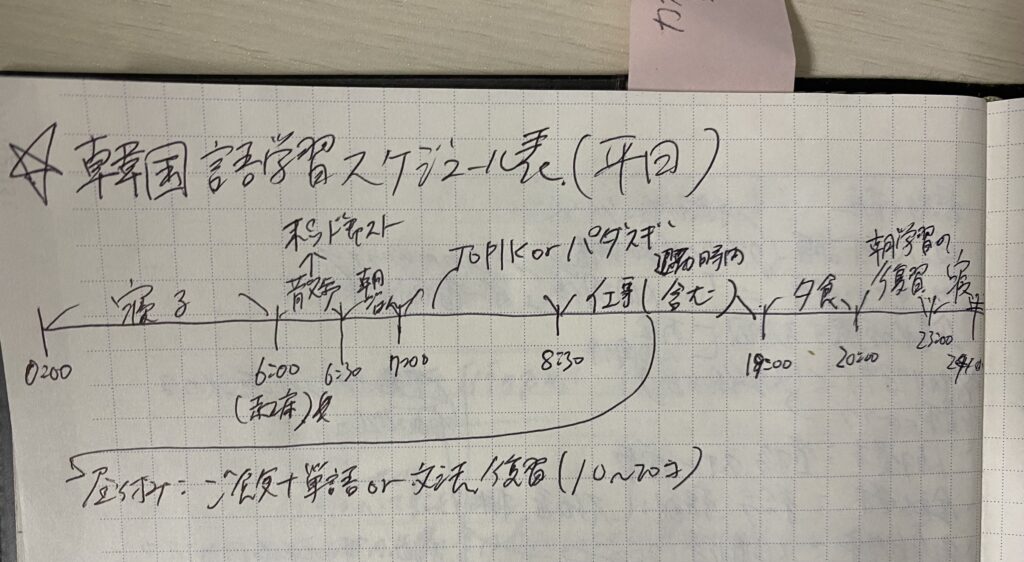 ☆韓国語学習スケジュール表(平日)
ポッドキャスト
↑
TOPIK or パダスギ
寝る
散歩
朝
仕事(通勤時間含む)
夕食
朝学習の復習
寝
0:00
6:00
6:30
7:00
8:30
19:00
20:00
23:00
(起床)
昼休み:ご飯+単語or文法復習(10~20分)